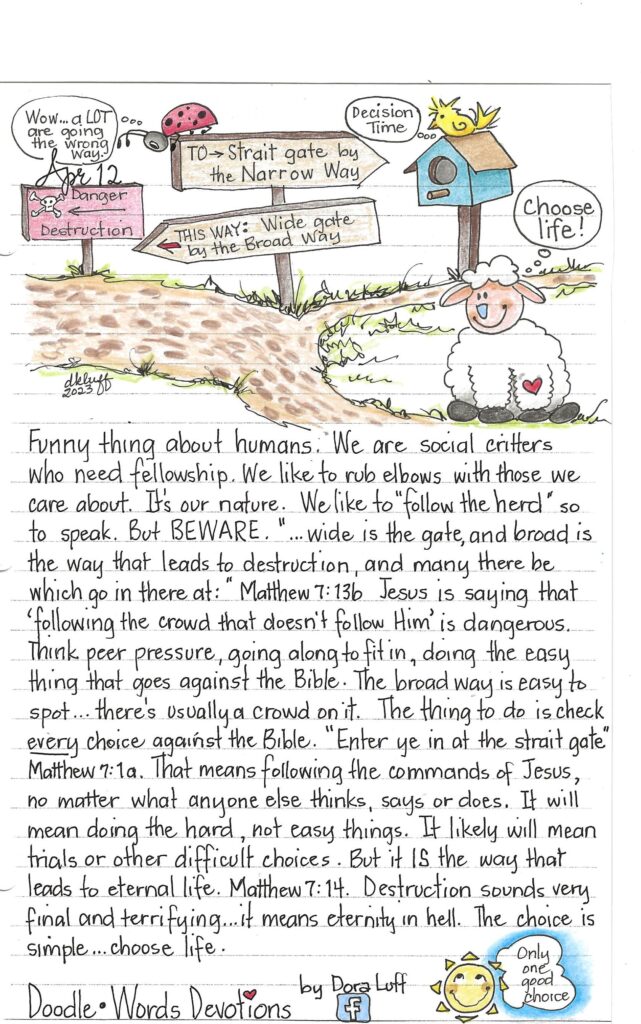 Wow... a LOT
are going
the wrong
way.
Apr 12
Danger
Destruction
TO → Strait gate by
the Narrow Way
THIS WAY: Wide gate
by the Broad Way
Decision
Time
Choose
life!
dkluff
2023
Funny thing about humans. We are social critters
who need fellowship. We like to rub elbows with those we
care about. It's our nature. We like to "follow the herd" so
to speak. But BEWARE. "...wide is the gate, and broad is
the way that leads to destruction, and many there be
which go in there at:" Matthew 7:13b Jesus is saying that
'following the crowd that doesn't follow Him' is dangerous.
Think peer pressure, going along to fit in, doing the easy
thing that goes against the Bible. The broad way is easy to
spot... there's usually a crowd on it. The thing to do is check
every choice against the Bible. "Enter ye in at the strait gate"
Matthew 7:1a. That means following the commands of Jesus,
no matter what anyone else thinks, says or does. It will
mean doing the hard, not easy things. It likely will mean
trials or other difficult choices. But it IS the way that
leads to eternal life. Matthew 7:14. Destruction sounds very
final and terrifying... it means eternity in hell. The choice is
simple... choose life.
Only
one
good
choice
Doodle • Words Devotions by Dora Luff
f